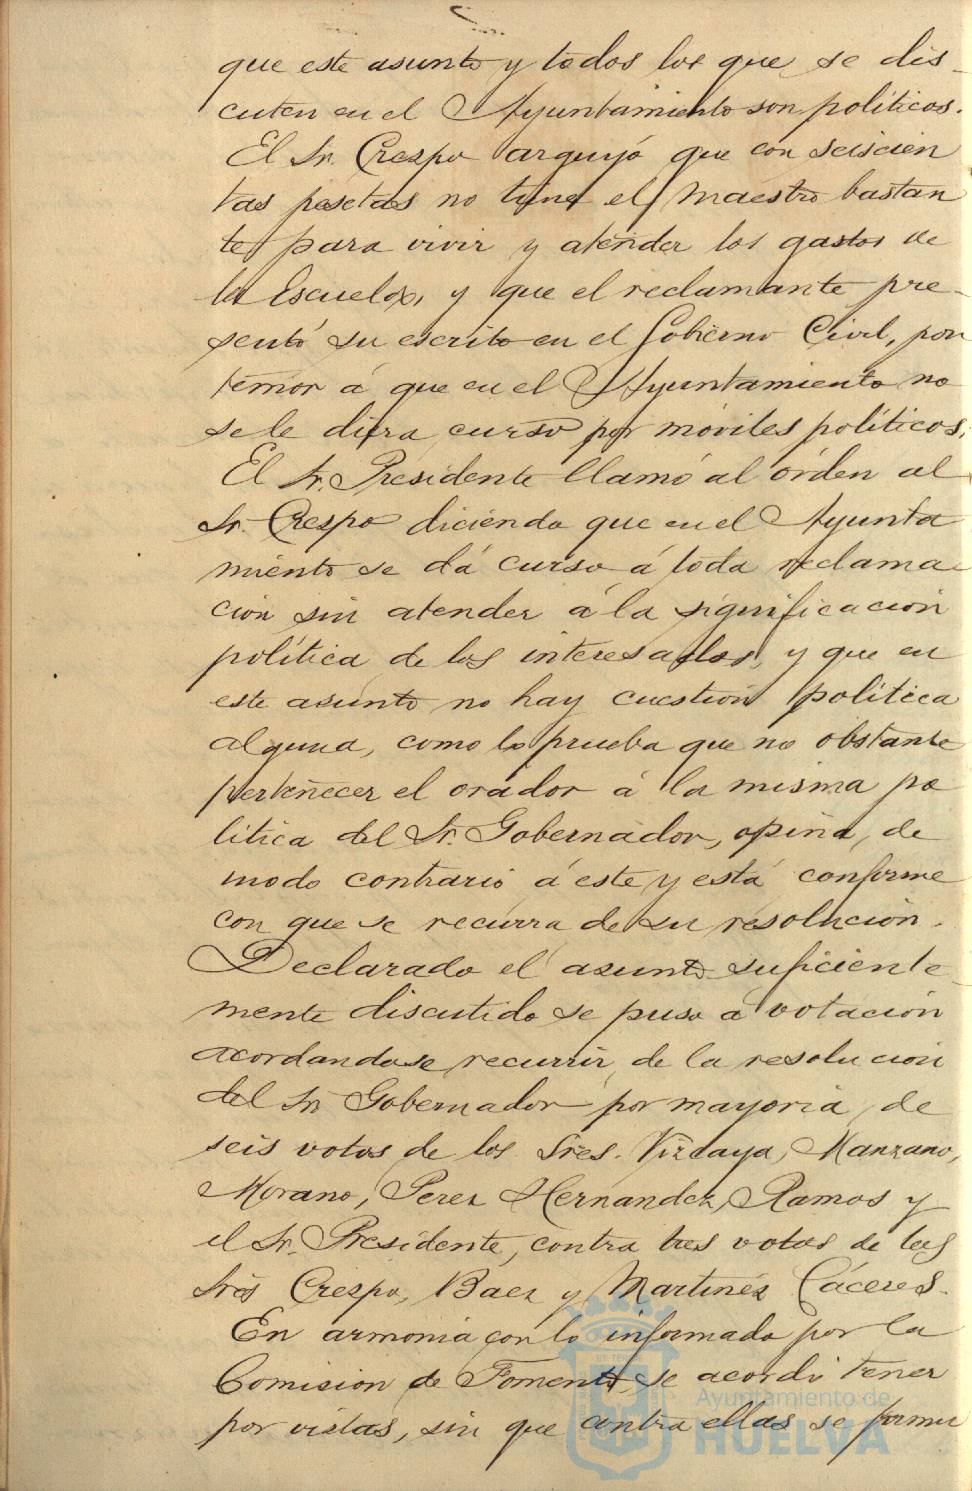 que este asunto y todos los que se dis-
cuten en el Ayuntamiento son políticos.
El Sr. Crespo arguyó que con seiscien
tas pesetas no tiene el maestro bastan
te para vivir y atender los gastos de
la Escuela, y que el reclamante pre-
sentó su escrito en el Gobierno Civil, por
temor á que en el Ayuntamiento no
se le diera curso por móviles políticos.
El Sr. Presidente llamó al órden al
Sr. Crespo diciendo que en el Ayunta
miento se dá curso á toda reclama-
cion sin atender á la significacion
política de los interesados, y que en
este asunto no hay cuestion política
alguna, como lo prueba que no obstante
pertenecer el orador á la misma po
lítica del Sr. Gobernador, opina, de
modo contrario á este y está conforme
con que se recurra de su resolucion.
Declarado el asunto suficiente-
mente discutido se puso á votacion
acordandose recurrir de la resolucion
del Sr. Gobernador por mayoria, de
seis votos de los Sres. Vizcaya, Manzano,
Morano, Perez Hernandez, Ramos y
el Sr. Presidente, contra tres votos de los
Sres Crespo, Baez y Martinez Cáceres.
En armonia con lo informado por la
Comision de Fomento, se acordó tener
por vistas, sin que contra ellas se formu
Ayuntamiento de
HUELVA